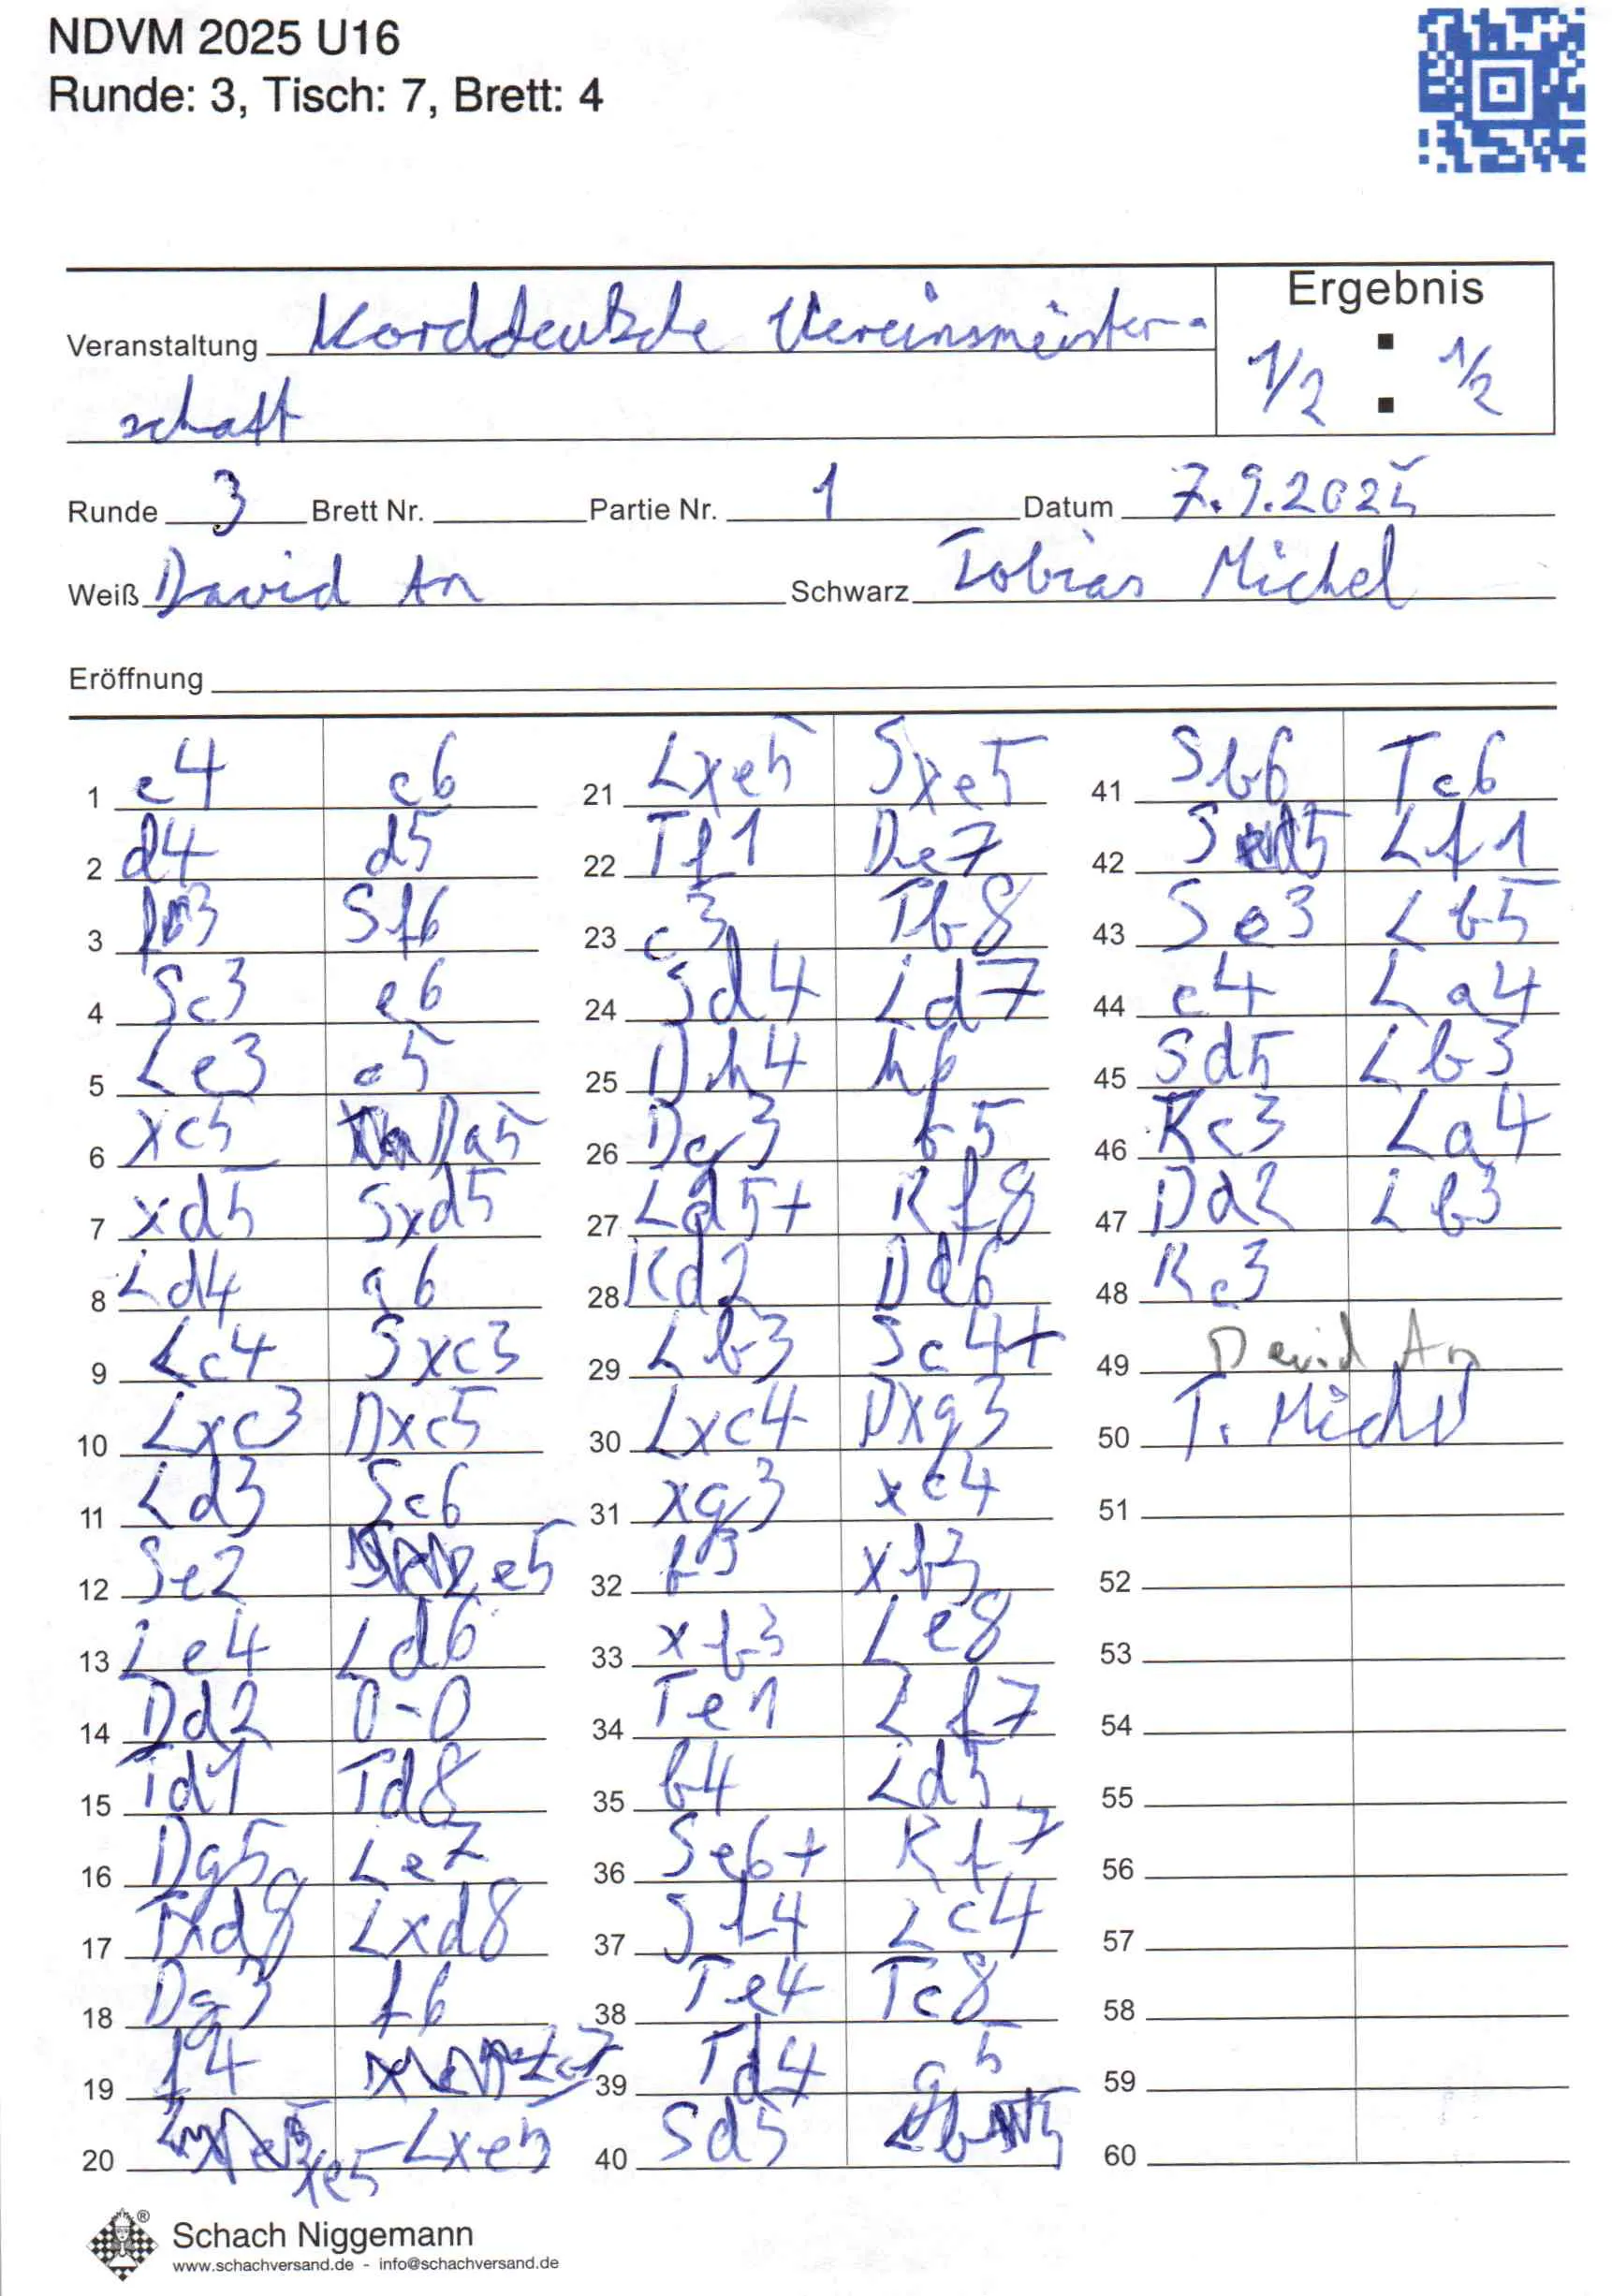 NDVM 2025 U16
Runde: 3, Tisch: 7, Brett: 4
Ergebnis
Veranstaltung Norddeutsche Vereinsmeister-
schaft
1/2 : 1/2
Runde 3 Brett Nr. Partie Nr. 1 Datum 7.9.2025
Weiß David An Schwarz Tobias Michel
Eröffnung
1 e4 c6
2 d4 d5
3 Sf6
4 Sc3 e6
5 Le3 c5
6 xc5 Da5
7 xd5 Sxd5
8 Ld4 a6
9 Lc4 Sxc3
10 Lxc3 Dxc5
11 Ld3 Sc6
12 Se2 e5
13 Le4 Ld6
14 Dd2 0-0
15 Td1 Td8
16 Dg5 Le7
17 Txd8 Lxd8
18 Dg3 f6
19 f4 Lc7
20 xe5 Lxe5
21 Lxe5 Sxe5
22 Tf1 De7
23 c3 Tb8
24 Sd4 Ld7
25 Dh4 h6
26 Dg3 b5
27 Ld5+ Kf8
28 Kd2 Dd6
29 Lb3 Sc4+
30 Lxc4 Dxg3
31 xg3 xc4
32 b3 xb3
33 xb3 Le8
34 Te1 Lf7
35 b4 Ld5
36 Se6+ Kf7
37 Sf4 Lc4
38 Te4 Tc8
39 Td4 g5
40 Sd5 Lb5
41 Sb6 Tc6
42 Sd5 Lf1
43 Se3 Lb5
44 c4 La4
45 Sd5 Lb3
46 Kc3 La4
47 Dd2 Lb3
48 Kc3
49 David An
50 T. Michel
51
52
53
54
55
56
57
58
59
60
Schach Niggemann
www.schachversand.de - info@schachversand.de